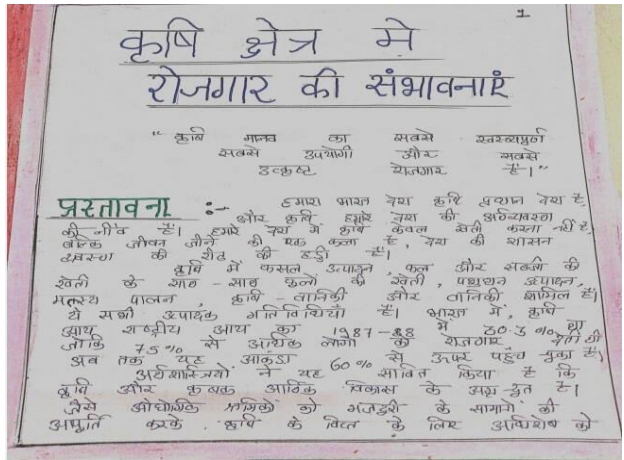 1
कृषि क्षेत्र मे
रोजगार की संभावनाएं
“ कृषि मानव का सबसे स्वस्थ्यपूर्ण
सबसे उपयोगी और सबसे
उत्कृष्ट रोजगार है।”
प्रस्तावना :- हमारा भारत देश कृषि प्रधान देश है
और कृषि हमारे देश की अर्थव्यवस्था
की नींव है। हमारे देश में कृषि केवल खेती करना नहीं है
बल्कि जीवन जीने की एक कला है, देश की शासन
व्यवस्था की रीढ की हड्डी है।
कृषि में फसल उत्पादन, फल और सब्जी की
खेती के साथ-साथ फूलों की खेती, पशुधन उत्पादन,
मत्स्य पालन, कृषि-वानिकी और वानिकी शामिल हैं।
ये सभी उत्पादक गतिविधियाँ हैं। भारत में, कृषि
आय राष्ट्रीय आय का 1987-88 में 30.3% था
जोकि 75% से अधिक लोगों को रोजगार देती थी
अब तक यह आंकडा 60% से ऊपर पहुंच चुका है।
अर्थशास्त्रियों ने यह साबित किया है कि
कृषि और कृषक आर्थिक विकास के अग्र दूत हैं।
जैसे औद्योगिक श्रमिकों को मजदूरी के सामानों की
आपूर्ति करके कृषि के वित्त के लिए अधिशेष को